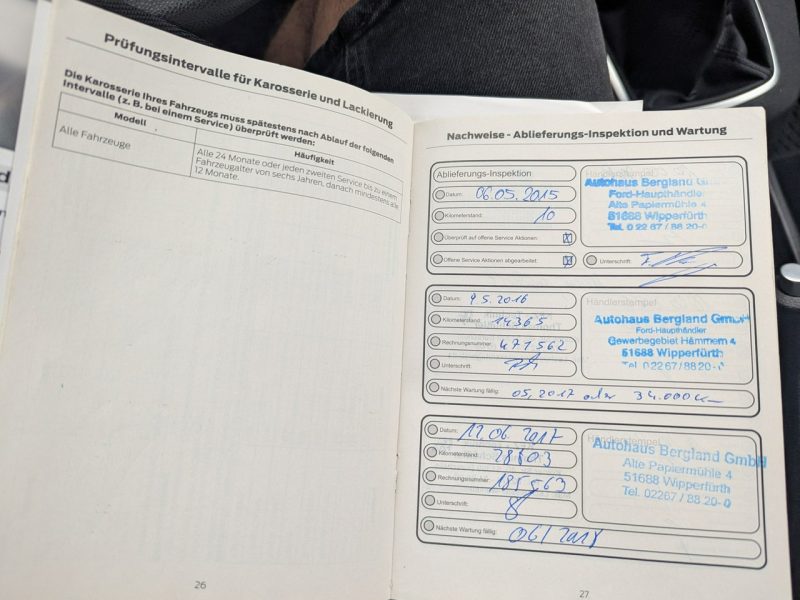 Prüfungsintervalle für Karosserie und Lackierung
Die Karosserie Ihres Fahrzeugs muss spätestens nach Ablauf der folgenden
Intervalle (z. B. bei einem Service) überprüft werden:
Modell
Häufigkeit
Alle Fahrzeuge
Alle 24 Monate oder jeden zweiten Service bis zu einem
Fahrzeugalter von sechs Jahren, danach mindestens alle
12 Monate.
26
Nachweise - Ablieferungs-Inspektion und Wartung
Ablieferungs-Inspektion
Datum: 06.05.2015
Kilometerstand: 10
Überprüft auf offene Service Aktionen: X
Offene Service Aktionen abgearbeitet: X
Händlerstempel
Autohaus Bergland
Ford-Haupthändler
Alte Papiermühle 4
51688 Wipperfürth
Tel. 0 22 67 / 88 20-0
Unterschrift:
Datum: 9.5.2016
Kilometerstand: 14365
Rechnungsnummer: 471562
Unterschrift:
Nächste Wartung fällig: 05.2017 oder 34.000 km
Händlerstempel
Autohaus Bergland GmbH
Ford-Haupthändler
Gewerbegebiet Hämmern 4
51688 Wipperfürth
Tel. 02267 / 88 20-0
Datum: 12.06.2017
Kilometerstand:
Rechnungsnummer:
Unterschrift:
Nächste Wartung fällig: 06/2018
Händlerstempel
Autohaus Bergland GmbH
Alte Papiermühle 4
51688 Wipperfürth
Tel. 02267 / 88 20-0
27